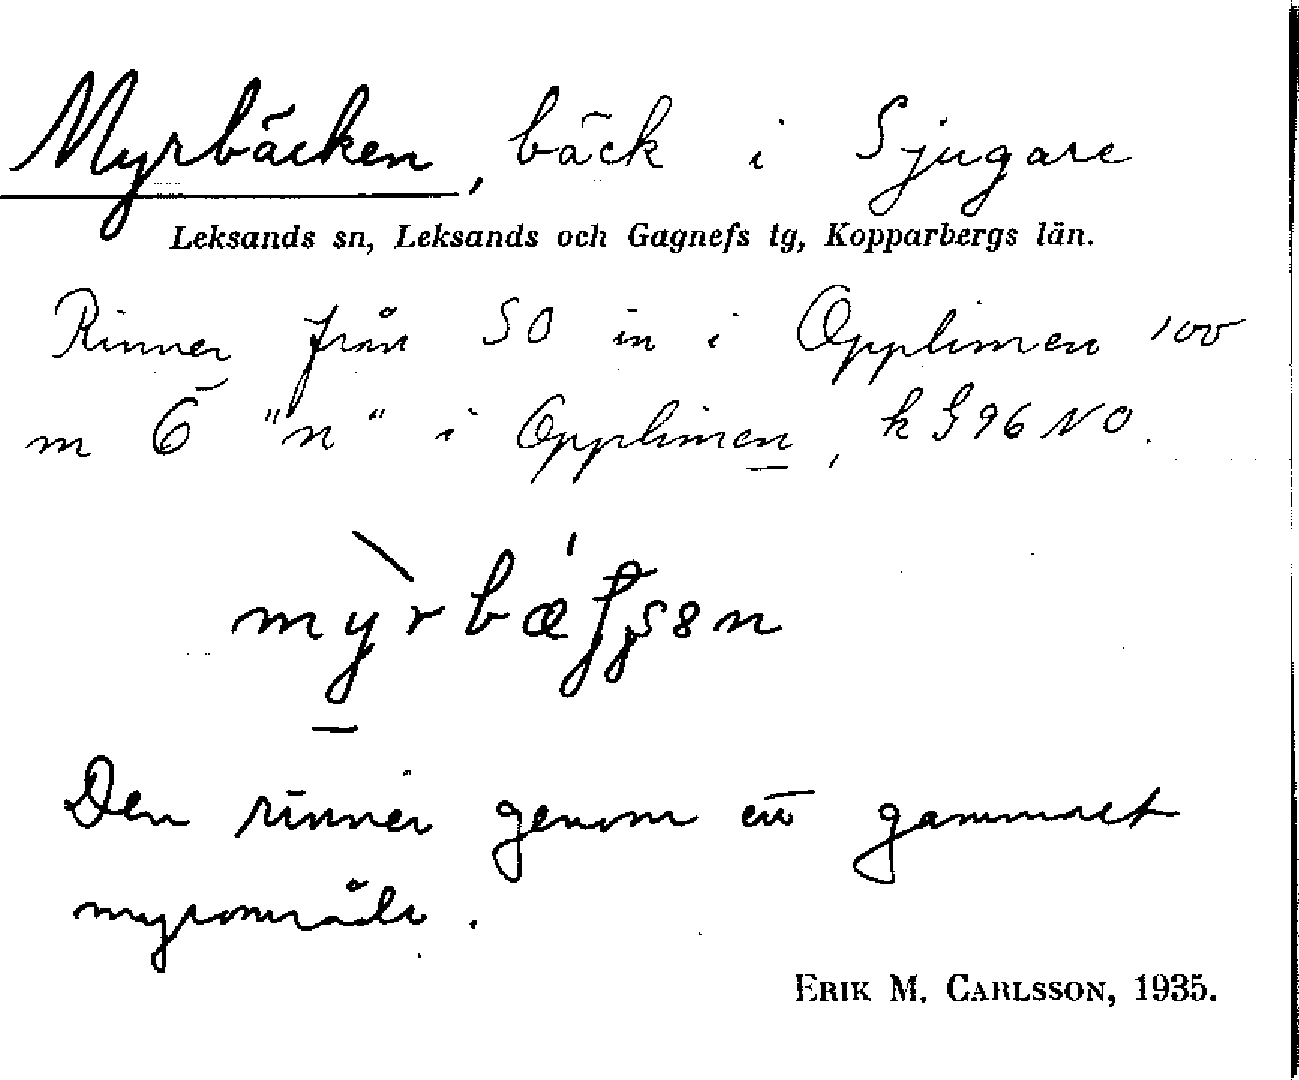 Myrbäcken, bäck i Sjugare
Leksands sn, Leksands och Gagnefs tg, Kopparbergs län.
Rinner från SO in i Opplimen 100
m Ö "n" i Opplimen, k G96NO.
Den rinner genom ett gammalt
myrområde.
ERIK M. CARLSSON, 1935.